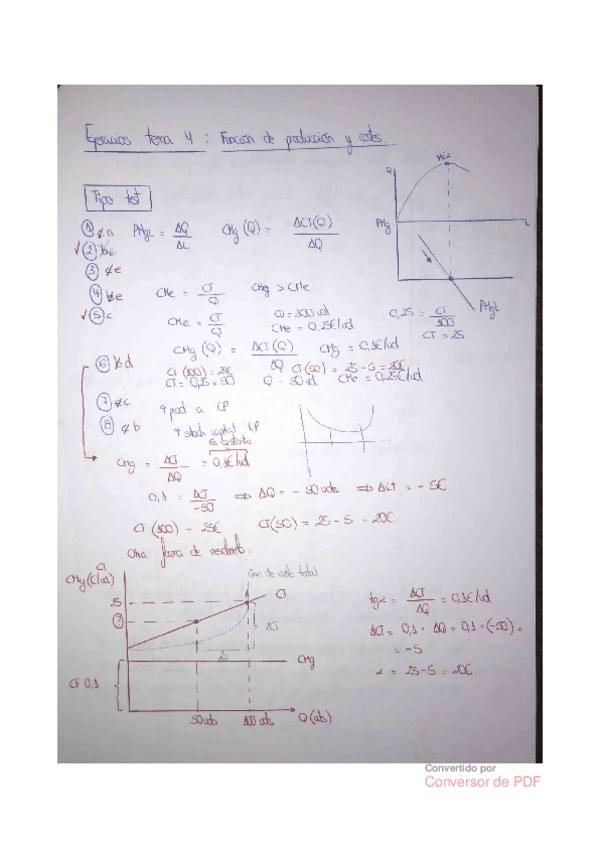 Ejercicios tema 4 : Función de producción y costes
Tipo test
Q
Máx
L
PMg
PMgL
① a PMgL = ΔQ/ΔL CMg (Q) = ΔCT(Q)/ΔQ
②
③ e
④ e CMe = CT/Q CMg > CMe
⑤ c CMe = CT/Q Q = 100 uds CMe = 0,25€/ud 0,25 = CT/100
CT = 25
CMg (Q) = ΔCT(Q)/ΔQ CMg = 0,1€/ud
⑥ d CT (100) = 25€ CT (50) = 25 - 5 = 20€
CT = 0,25 × 50 Q = 50 ud CMe = 0,25€/ud
⑦ c ↑ prod a CP
⑧ b ↑ stock capital LP
es constante
CMg = ΔCT/ΔQ = 0,1€/ud
0,1 = ΔCT/-50 ⇒ ΔQ = - 50 uds ⇒ ΔCT = - 5€
CT (100) = 25€ CT(50) = 25 - 5 = 20€
Otra forma de hacerlo:
CT
CMg (€/ud)
curva de coste total
CT
25
?
ΔCT
CMg
CF 0,1
50 uds 100 uds Q (uds)
tgα = ΔCT/ΔQ = 0,1€/ud
ΔCT = 0,1 · ΔQ = 0,1 · (-50) =
= -5
25 - 5 = 20€
Convertido por
Conversor de PDF